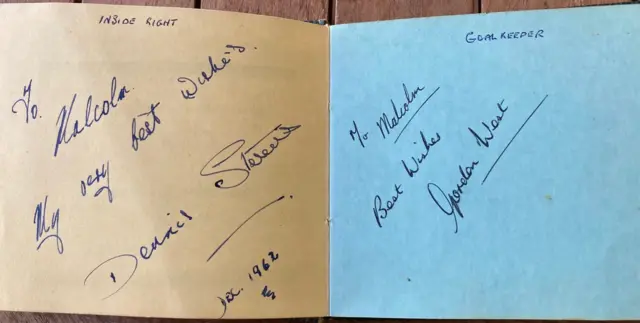 INSIDE RIGHT
To.
Malcolm.
My very best Wishe's.
Dennis Stevens
Dec. 1962
GOALKEEPER
To Malcolm
Best Wishes
Gordon West